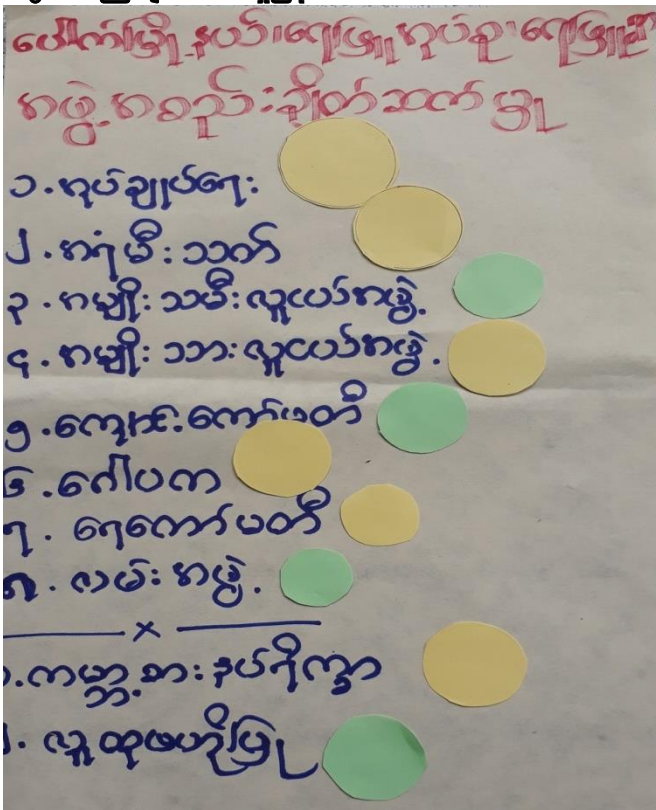 ပေါက်မြို့နယ်၊ရေဖြူအုပ်စု၊ရေဖြူရွာ
အဖွဲ့အစည်းချိတ်ဆက်မှု
၁.အုပ်ချုပ်ရေး
၂.အရံမီးသတ်
၃.အမျိုးသမီးလူငယ်အဖွဲ့
၄.အမျိုးသားလူငယ်အဖွဲ့
၅.ကျောင်းကော်မတီ
၆.ဂေါပက
၇.ရေကော်မတီ
၈.လမ်းအဖွဲ့
x
၁.ကမ္ဘာ့စားနပ်ရိက္ခာ
၂.လူထုဗဟိုပြု